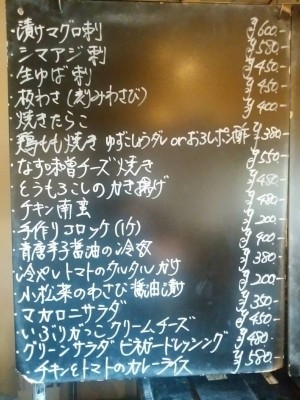 ・漬けマグロ刺 ¥600-
・シマアジ刺 ¥580-
・生ゆば刺 ¥450-
・板わさ(刻みわさび) ¥450-
・焼きたらこ ¥400-
・鶏もも焼き ゆずこしょうダレorおろしポン酢 ¥380-
・なす味噌チーズ焼き ¥550-
・とうもろこしのかき揚げ ¥480-
・チキン南蛮 ¥480-
・手作りコロッケ(1ケ) ¥200-
・青唐辛子醤油の冷奴 ¥400-
・冷やしトマトのタルタルがけ ¥380-
・小松菜のわさび醤油漬 ¥200-
・マカロニサラダ ¥350-
・いぶりがっこクリームチーズ ¥450-
・グリーンサラダ ビネガードレッシング ¥480-
・チキンとトマトのカレーライス ¥580-